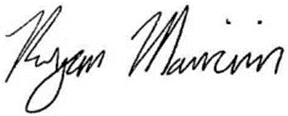 Ryan Mancini